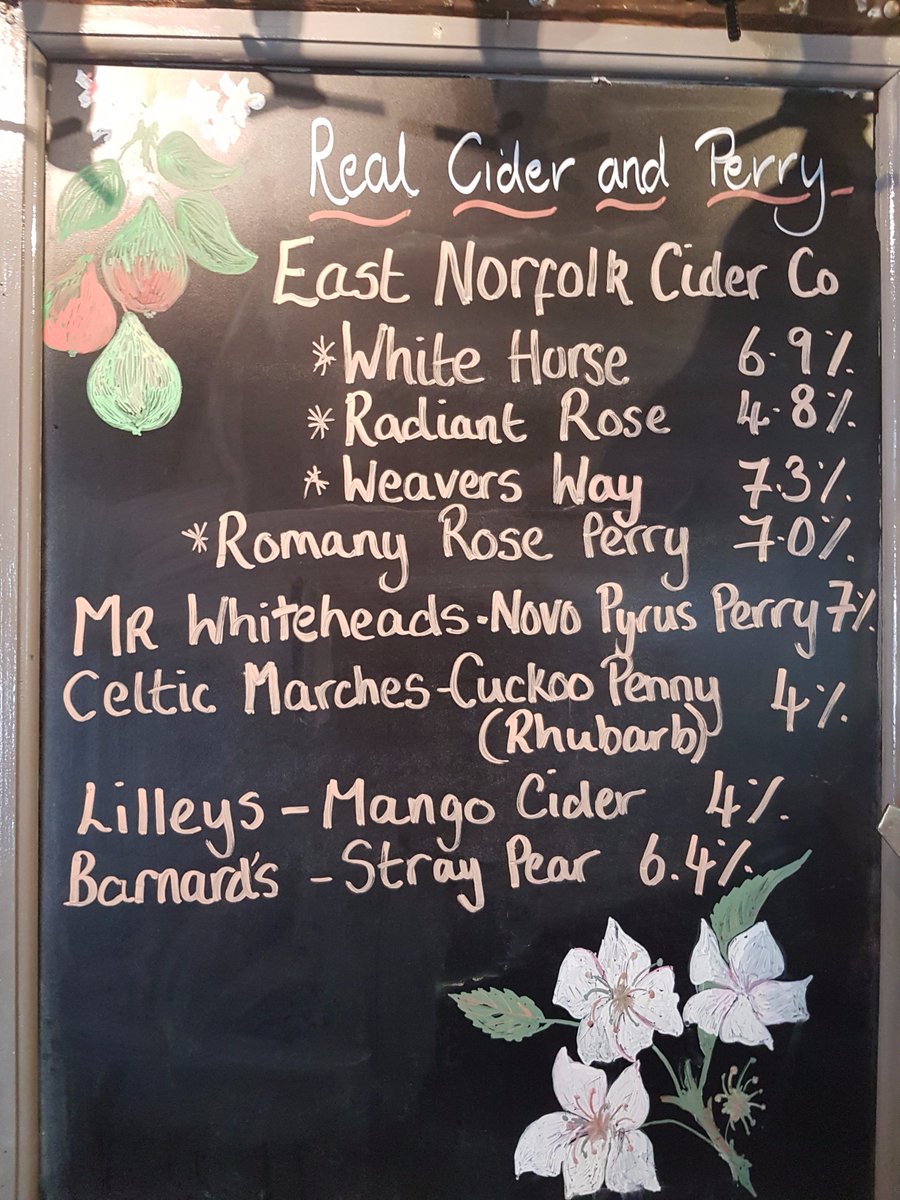 Real Cider and Perry
East Norfolk Cider Co
*White Horse 6.9%
*Radiant Rose 4.8%
*Weavers Way 7.3%
*Romany Rose Perry 7.0%
MR Whiteheads-Novo Pyrus Perry 7%
Celtic Marches-Cuckoo Penny 4%
(Rhubarb)
Lilleys - Mango Cider 4%
Barnard's - Stray Pear 6.4%